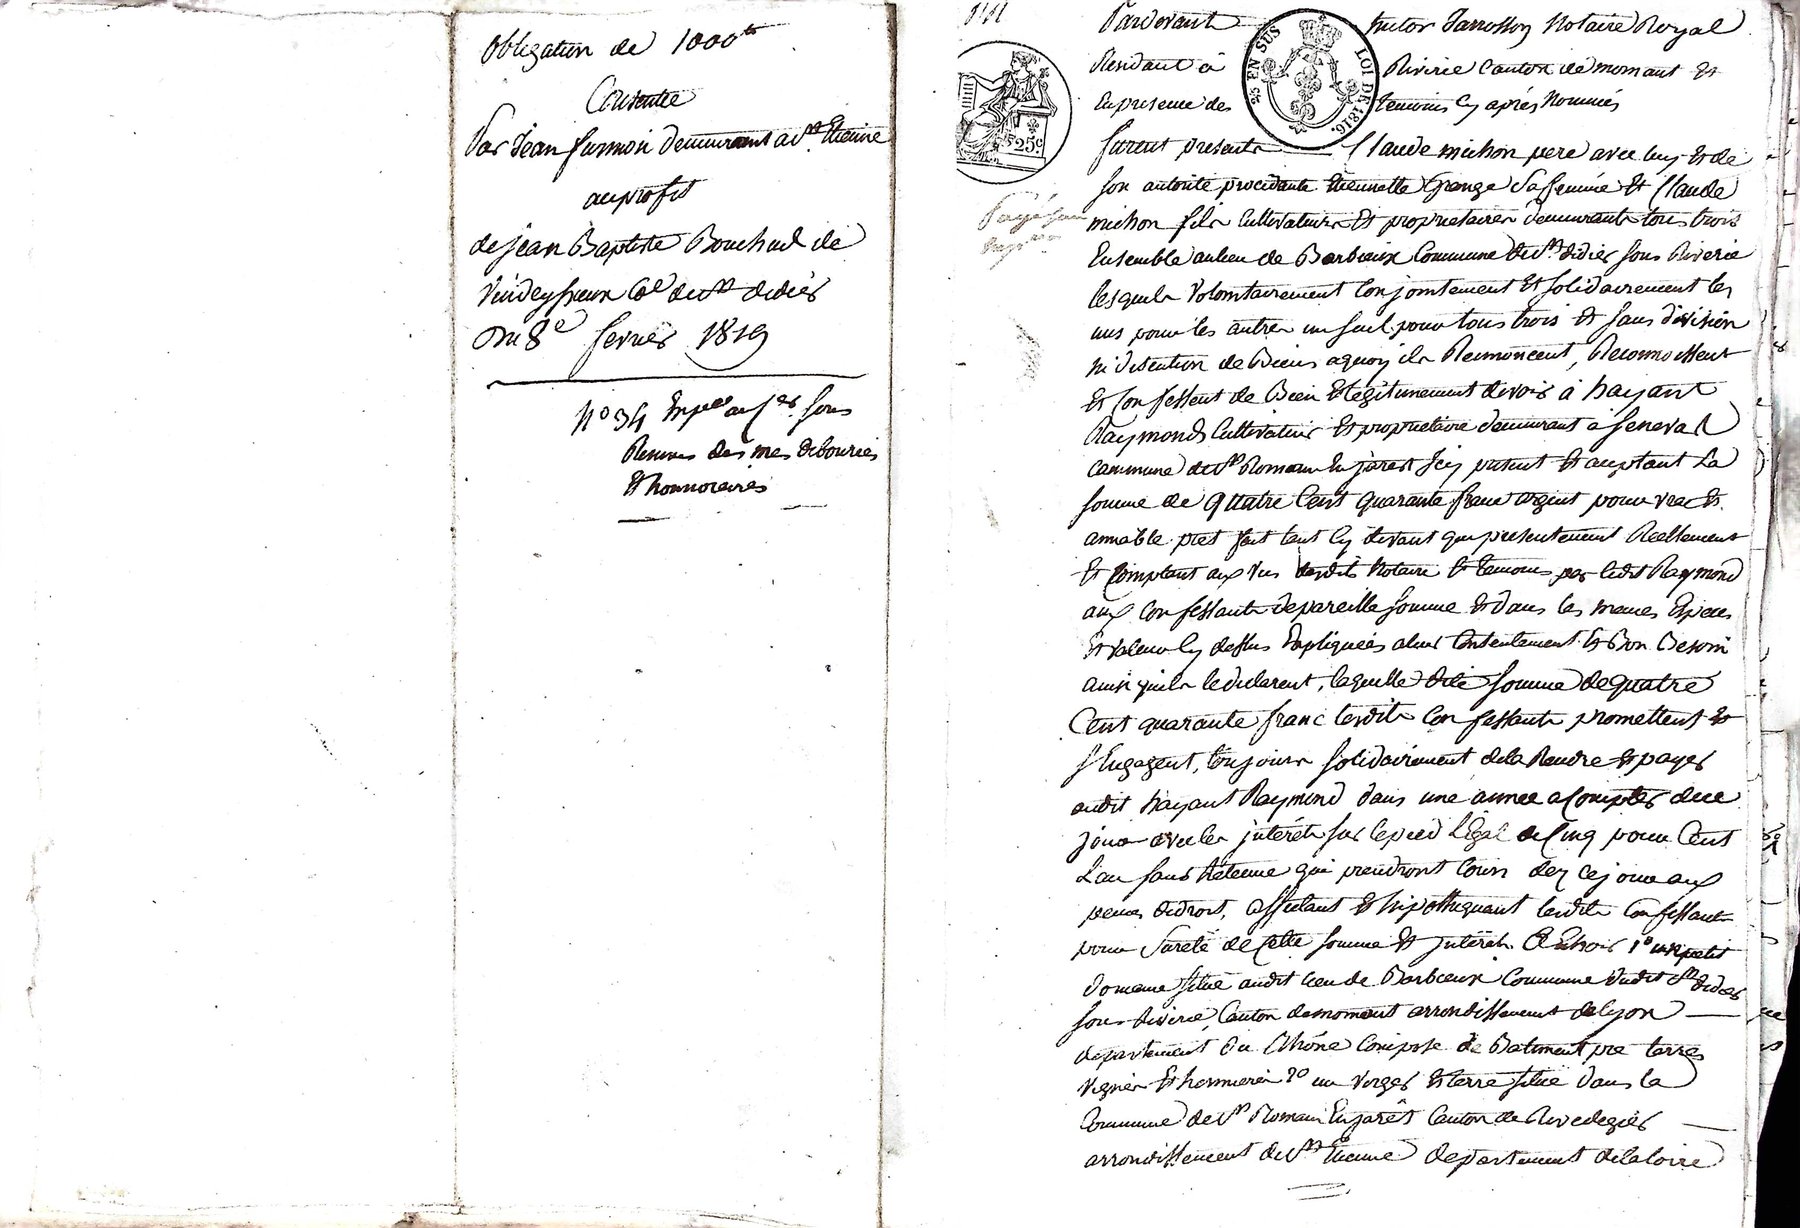 Obligation de 1000ᵗᵗ
Consentie
Par Jean furmon demeurant a Sᵗ Etienne
au profit
de jean Baptiste Bouchud de
Cⁿᵉ de Sᵗ didier
Du 8ᵉ fevrier 1819
N° 34 sous
Reserve des mes debourcés
Et honnoraires
Pardevant hector Jarrosson Notaire Royal
Residant à Riverie Canton de mornant Et
En presence des temoins cy aprés Nommés
furent presents Claude michon pere avec luy Et de
son autorité procedante Etiennette Grange Sa femme Et Claude
michon fils Cultivateurs Et proprietaires demeurants tous trois
Ensemble au lieu de Barbieux Commune de Sᵗ didier sous Riverie
lesquels Volontairement Conjointement Et solidairement les
uns pour les autres un seul pour tous trois Et sans division
ni discution de Biens aquoy ils Renoncent, Reconnoissent
Et Confessent de Bien Et legitimement devoir à hayant
Raymond Cultivateur Et proprietaire demeurant à feneval
commune de Sᵗ Romain En jarest Icy present Et aceptant La
somme de quatre Cent quarante franc argent pour vrai Et
amiable pret fait tant Cy devant que presentement Reellement
Et Comptant aux vus desdits Notaire Et temoins par ledit Raymond
aux Confessants de pareille somme Et dans les memes Especes
Et valeur Cy dessus Expliquées a leur Contentement Et Bon Besoin
ainsi quils le declarent, laquelle dite somme de quatre
Cent quarante franc lesdits Confessants promettent Et
s'Engagent, toujours solidairement de la Rendre Et payer
audit hayant Raymond dans une année a Compter de ce
jour avec les interéts sur le pied Légal de Cinq pour Cent
L'an sans Retenue qui prendront Cours dez ce jour aux
peines de droit, affectant Et hipothequant lesdits Confessants
pour Sureté de Cette somme Et interéts 1° un petit
domaine situé audit lieu de Barbieux Commune dudit Sᵗ didier
sous Riverie, Canton de mornant arrondissement de lyon
departement du Rhône Composé de Batiment pre terres
vignes Et hermeires 2° un verger Et terre situé dans la
Commune de Sᵗ Romain En jarêt Canton de Rivedegier
arrondissement de Sᵗ Etienne departement de la loire
25 EN SUS
LOI DE 1816.
25ᶜ